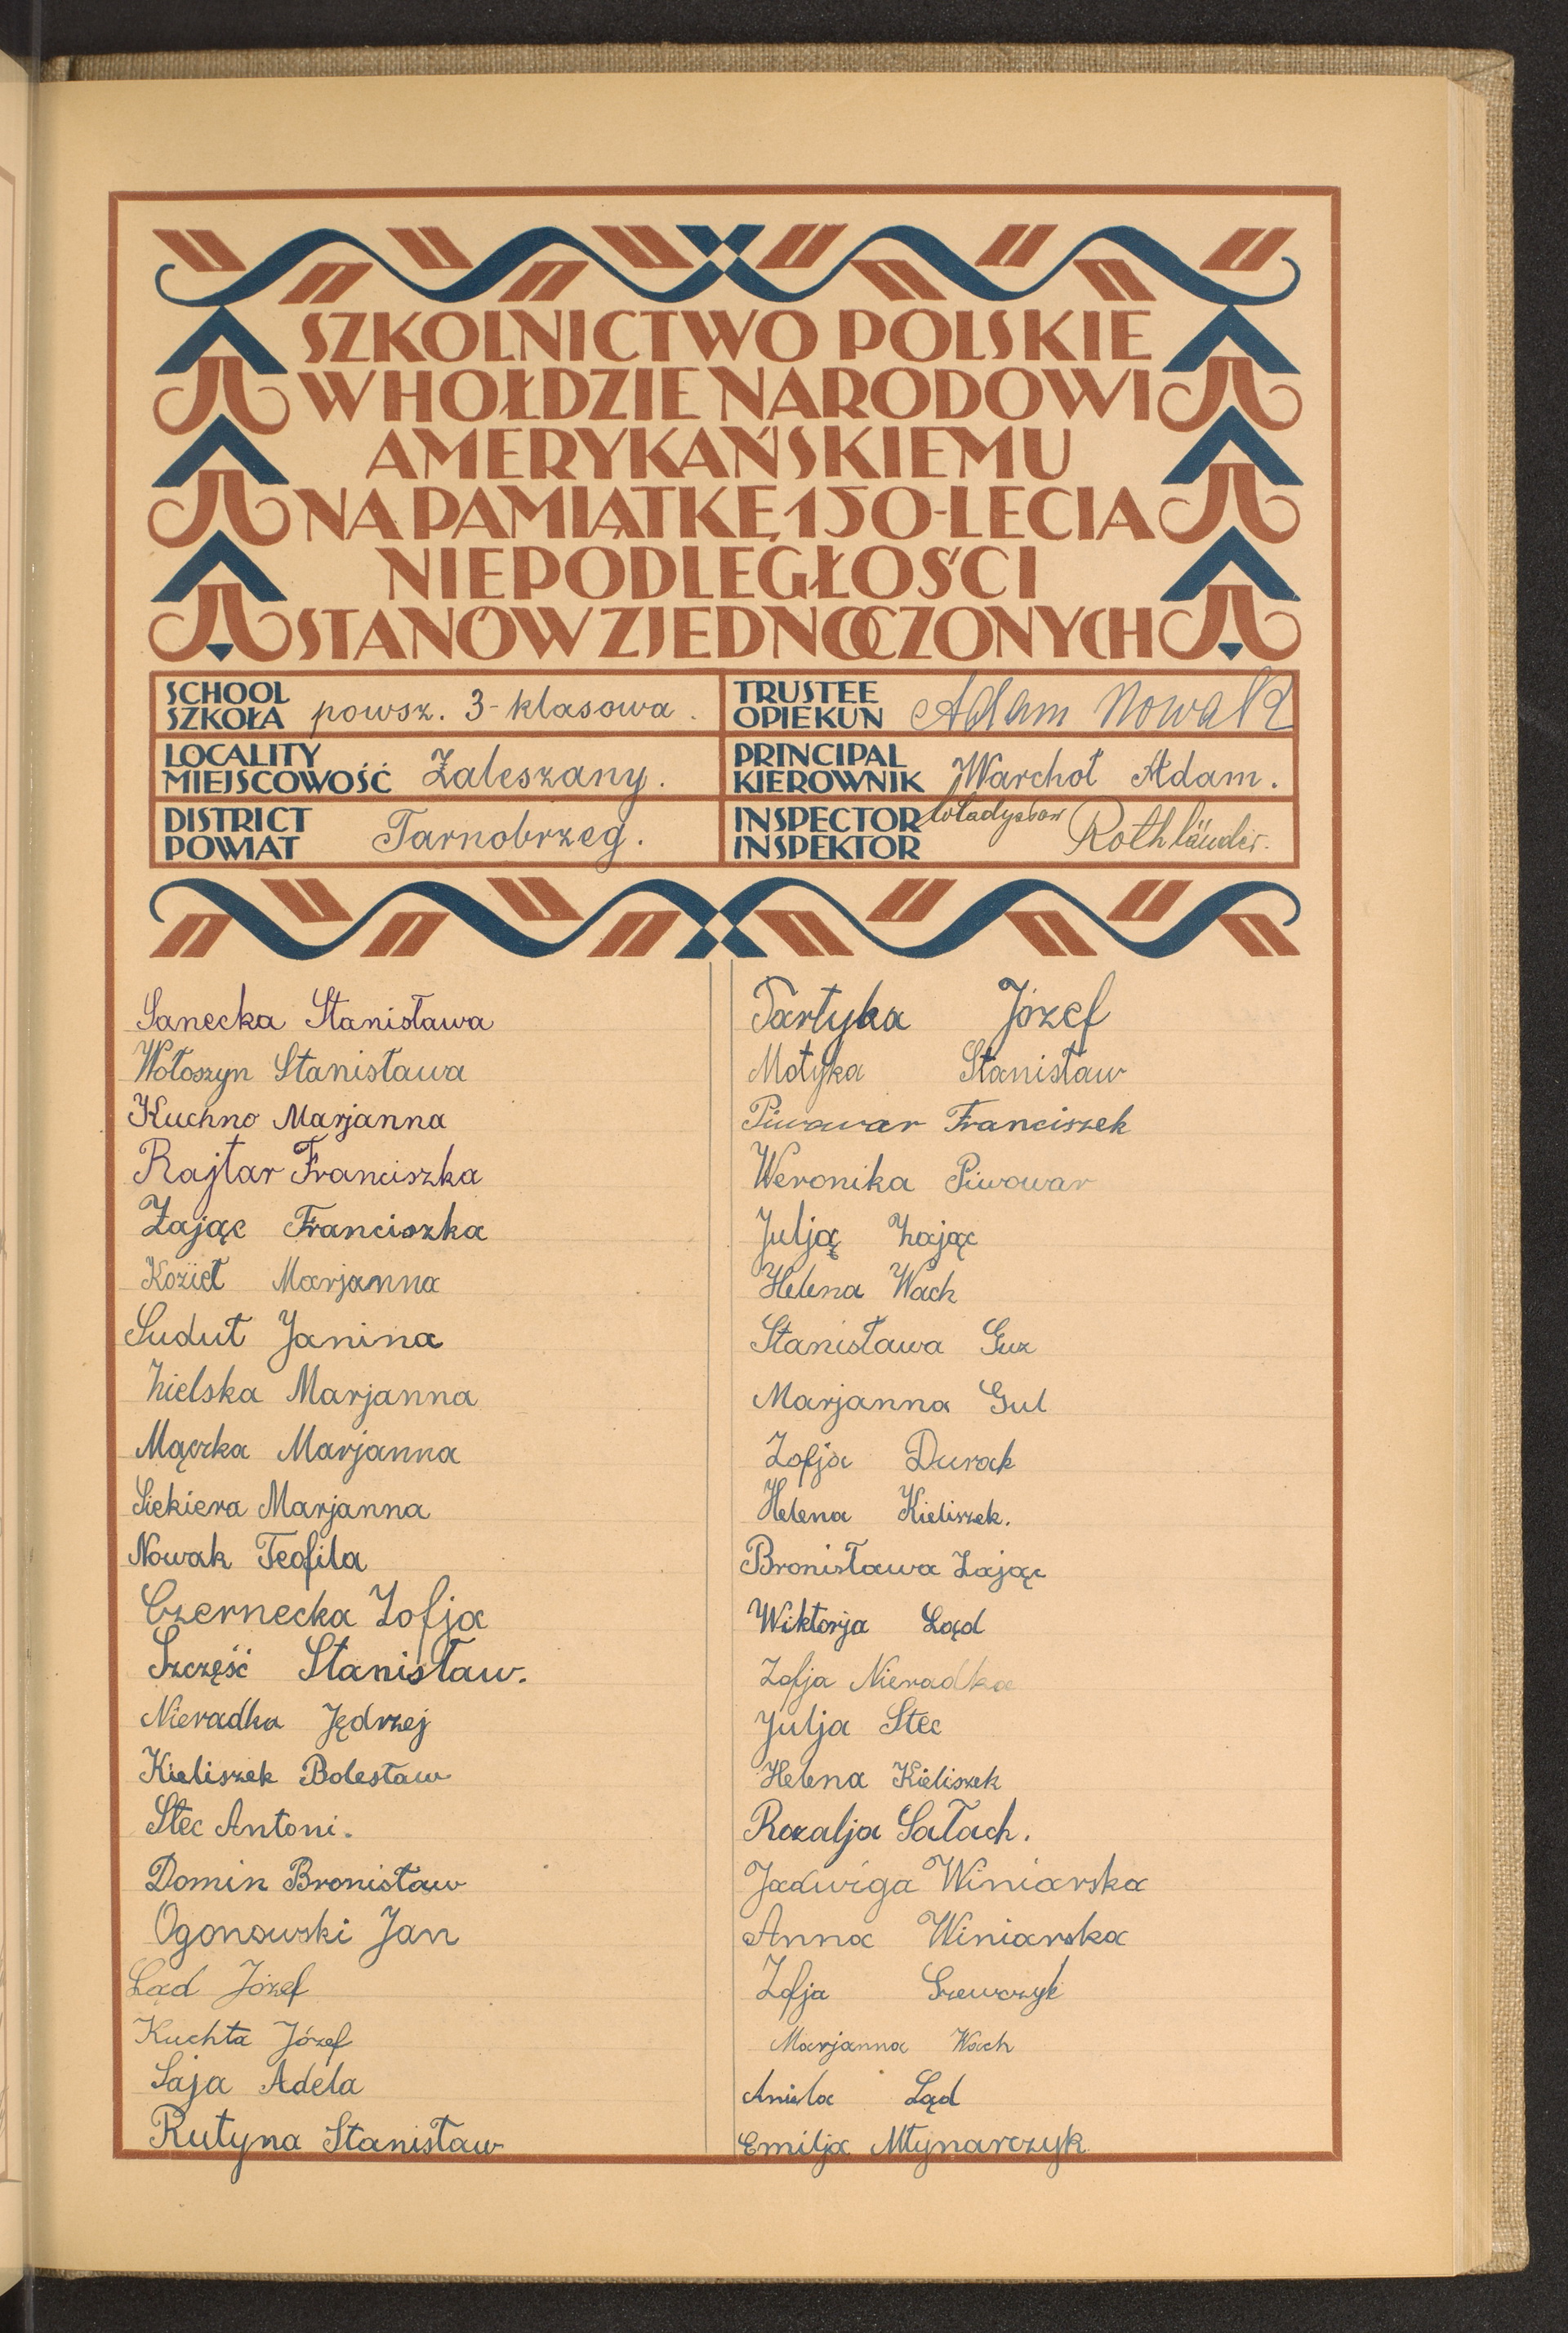 SZKOLNICTWO POLSKIE
W HOŁDZIE NARODOWI
AMERYKAŃSKIEMU
NA PAMIĄTKĘ 150-LECIA
NIEPODLEGŁOŚCI
STANÓW ZJEDNOCZONYCH
SCHOOL
SZKOŁA powsz. 3-klasowa.
LOCALITY
MIEJSCOWOŚĆ Zaleszany.
DISTRICT
POWIAT Tarnobrzeg.
TRUSTEE
OPIEKUN Adam Nowak
PRINCIPAL
KIEROWNIK Warchoł Adam.
INSPECTOR Władysław
INSPEKTOR Rothländer.
Sanecka Stanisława
Wołoszyn Stanisława
Kuchno Marjanna
Rajtar Franciszka
Zając Franciszka
Kozieł Marjanna
Sudut Janina
Zielska Marjanna
Mączka Marjanna
Siekiera Marjanna
Nowak Teofila
Czernecka Zofja
Szczęść Stanisław.
Nieradka Jędrzej
Kieliszek Bolesław
Stec Antoni.
Domin Bronisław
Ogonowski Jan
Ląd Józef
Kuchta Józef
Saja Adela
Rutyna Stanisław
Partyka Józef
Motyka Stanisław
Piwowar Franciszek
Weronika Piwowar
Julją Zając
Helena Wach
Stanisława Guz
Marjanna Gul
Zofja Durak
Helena Kieliszek.
Bronisława Zając
Wiktorja Ląd
Zofja Nieradka
Julja Stec
Helena Kieliszek
Rozalja Sałach.
Jadwiga Winiarska
Anna Winiarska
Zofja Szewczyk
Marjanna Wach
Aniela Ląd
Emilja Młynarczyk